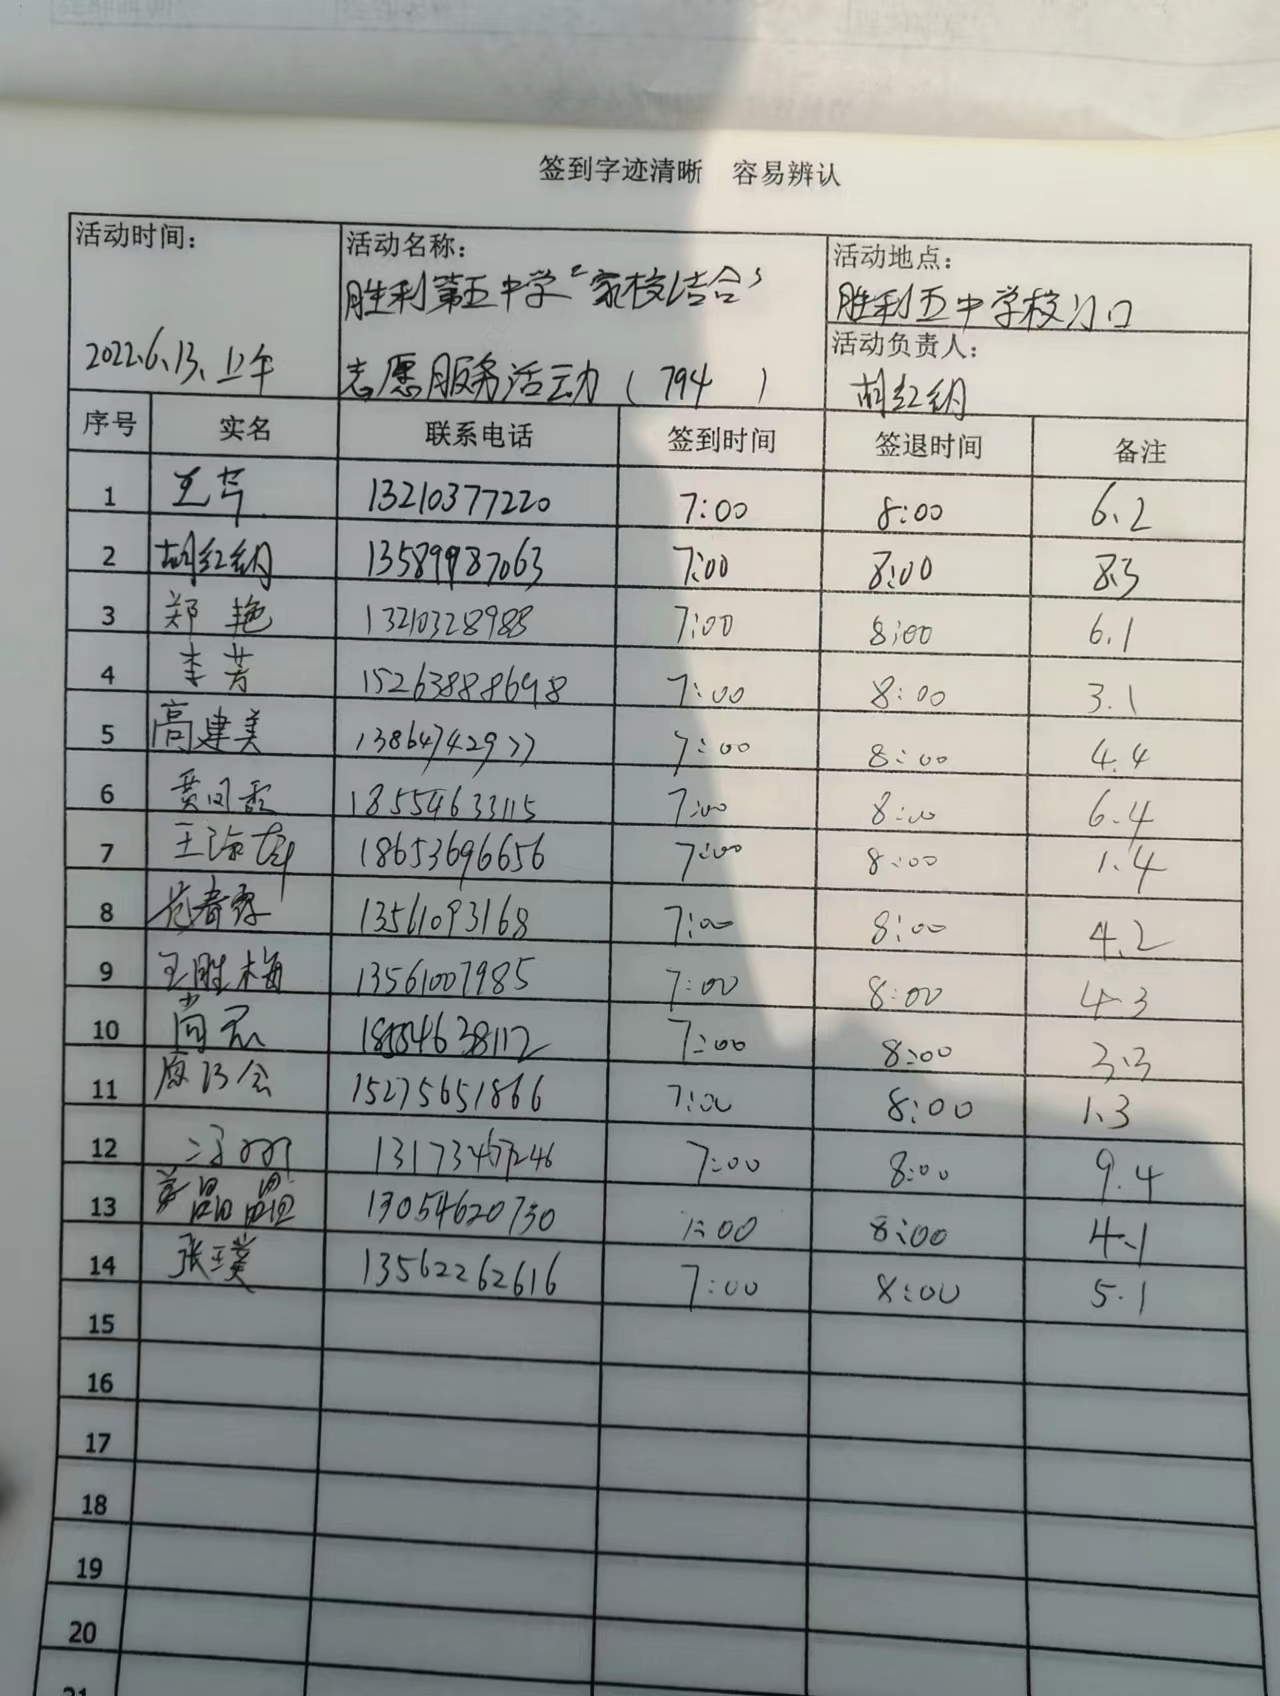 签到字迹清晰 容易辨认
活动时间：
2022.6.13、上午
活动名称：
胜利第五中学“家校结合”
志愿服务活动（794 ）
活动地点：
胜利五中学校门口
活动负责人：
胡红娟
序号 实名 联系电话 签到时间 签退时间 备注
1 13210377220 7:00 8:00 6.2
2 胡红娟 13589987063 7:00 8:00 8.3
3 郑艳 13210328988 7:00 8:00 6.1
4 李芳 15263888698 7:00 8:00 3.1
5 高建美 13864742977 7:00 8:00 4.4
6 18554633115 7:00 8:00 6.4
7 18653696656 7:00 8:00 1.4
8 13561093168 7:00 8:00 4.2
9 王胜梅 13561007985 7:00 8:00 4.3
10 7:00 8:00 3.3
11 15275651866 7:00 8:00 1.3
12 7:00 8:00 9.4
13 13054620730 7:00 8:00 4.1
14 张瑛 13562262616 7:00 8:00 5.1
15
16
17
18
19
20
21